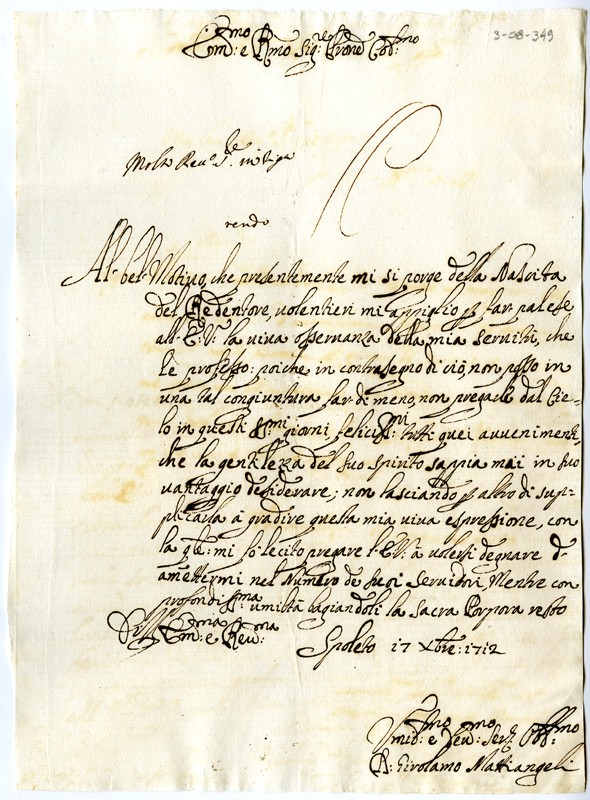 3-08-349
Em:mo e R:mo Sig:re Prone Col:mo
Molto Reu:
rendo
Al bel Motiuo, che presentemente mi si porge della Nascita
del Redentore, uolentieri mi appiglio p far palese
all' E: V: la uiua osseruanza della mia seruitù, che
le professo: poiche in contrasegno di ciò, non posso in
una tal congiuntura far di meno, non pregarle dal Cie-
lo in questi SS:mi giorni feliciss:mi tutti quei auuenimenti,
che la gentilezza del suo spirito sappia mai in suo
uantaggio desiderare; non lasciando p altro di sup-
plicarla à gradire questa mia uiua espressione, con
la qle: mi fò lecito pregare l' E: V: à uolersi degnare d'
amettermi nel Numero de suoi seruidori, Mentre con
profondiss:ma umiltà bagiandoli la sacra Porpora resto
Em:ma e Reu:ma
Spoleto 17 Xbre: 1712
Umil:mo e Deu:mo Ser: Obb:mo
Girolamo Mattiangeli